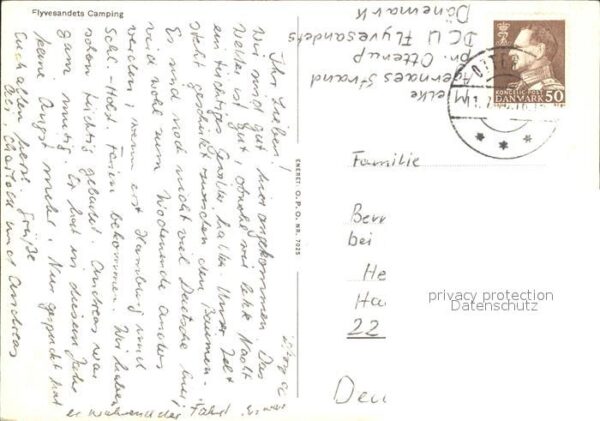 Flyvesandets Camping
Ihr Lieben!
Wir sind gut hier angekommen. Das
Wetter ist gut, obwohl wir letzte Nacht
ein tüchtiges Gewitter hatten. Unser Zelt
steht geschützt zwischen den Bäumen.
Es sind noch nicht viel Deutsche hier,
wird wohl zum Wochenende anders
werden, wenn erst Hamburg und
Schl.-Holst. Ferien bekommen. Wir haben
schon tüchtig gebadet. Andreas war
ganz mutig. Er hat in diesem Jahr
keine Angst mehr. Nur gespuckt hat
er während der Fahrt. Es war
Euch allen herzl. Grüße
und Andreas
ENERET: O.P.O. NR. 7025
Mielke
Agernaes Strand
pr. Otterup
DCU Flyvesandets
Dänemark
KONGELIG POST
DANMARK 50
OTTERUP
Familie
Bern
bei
He
Ha
22
Deu
privacy protection
Datenschutz